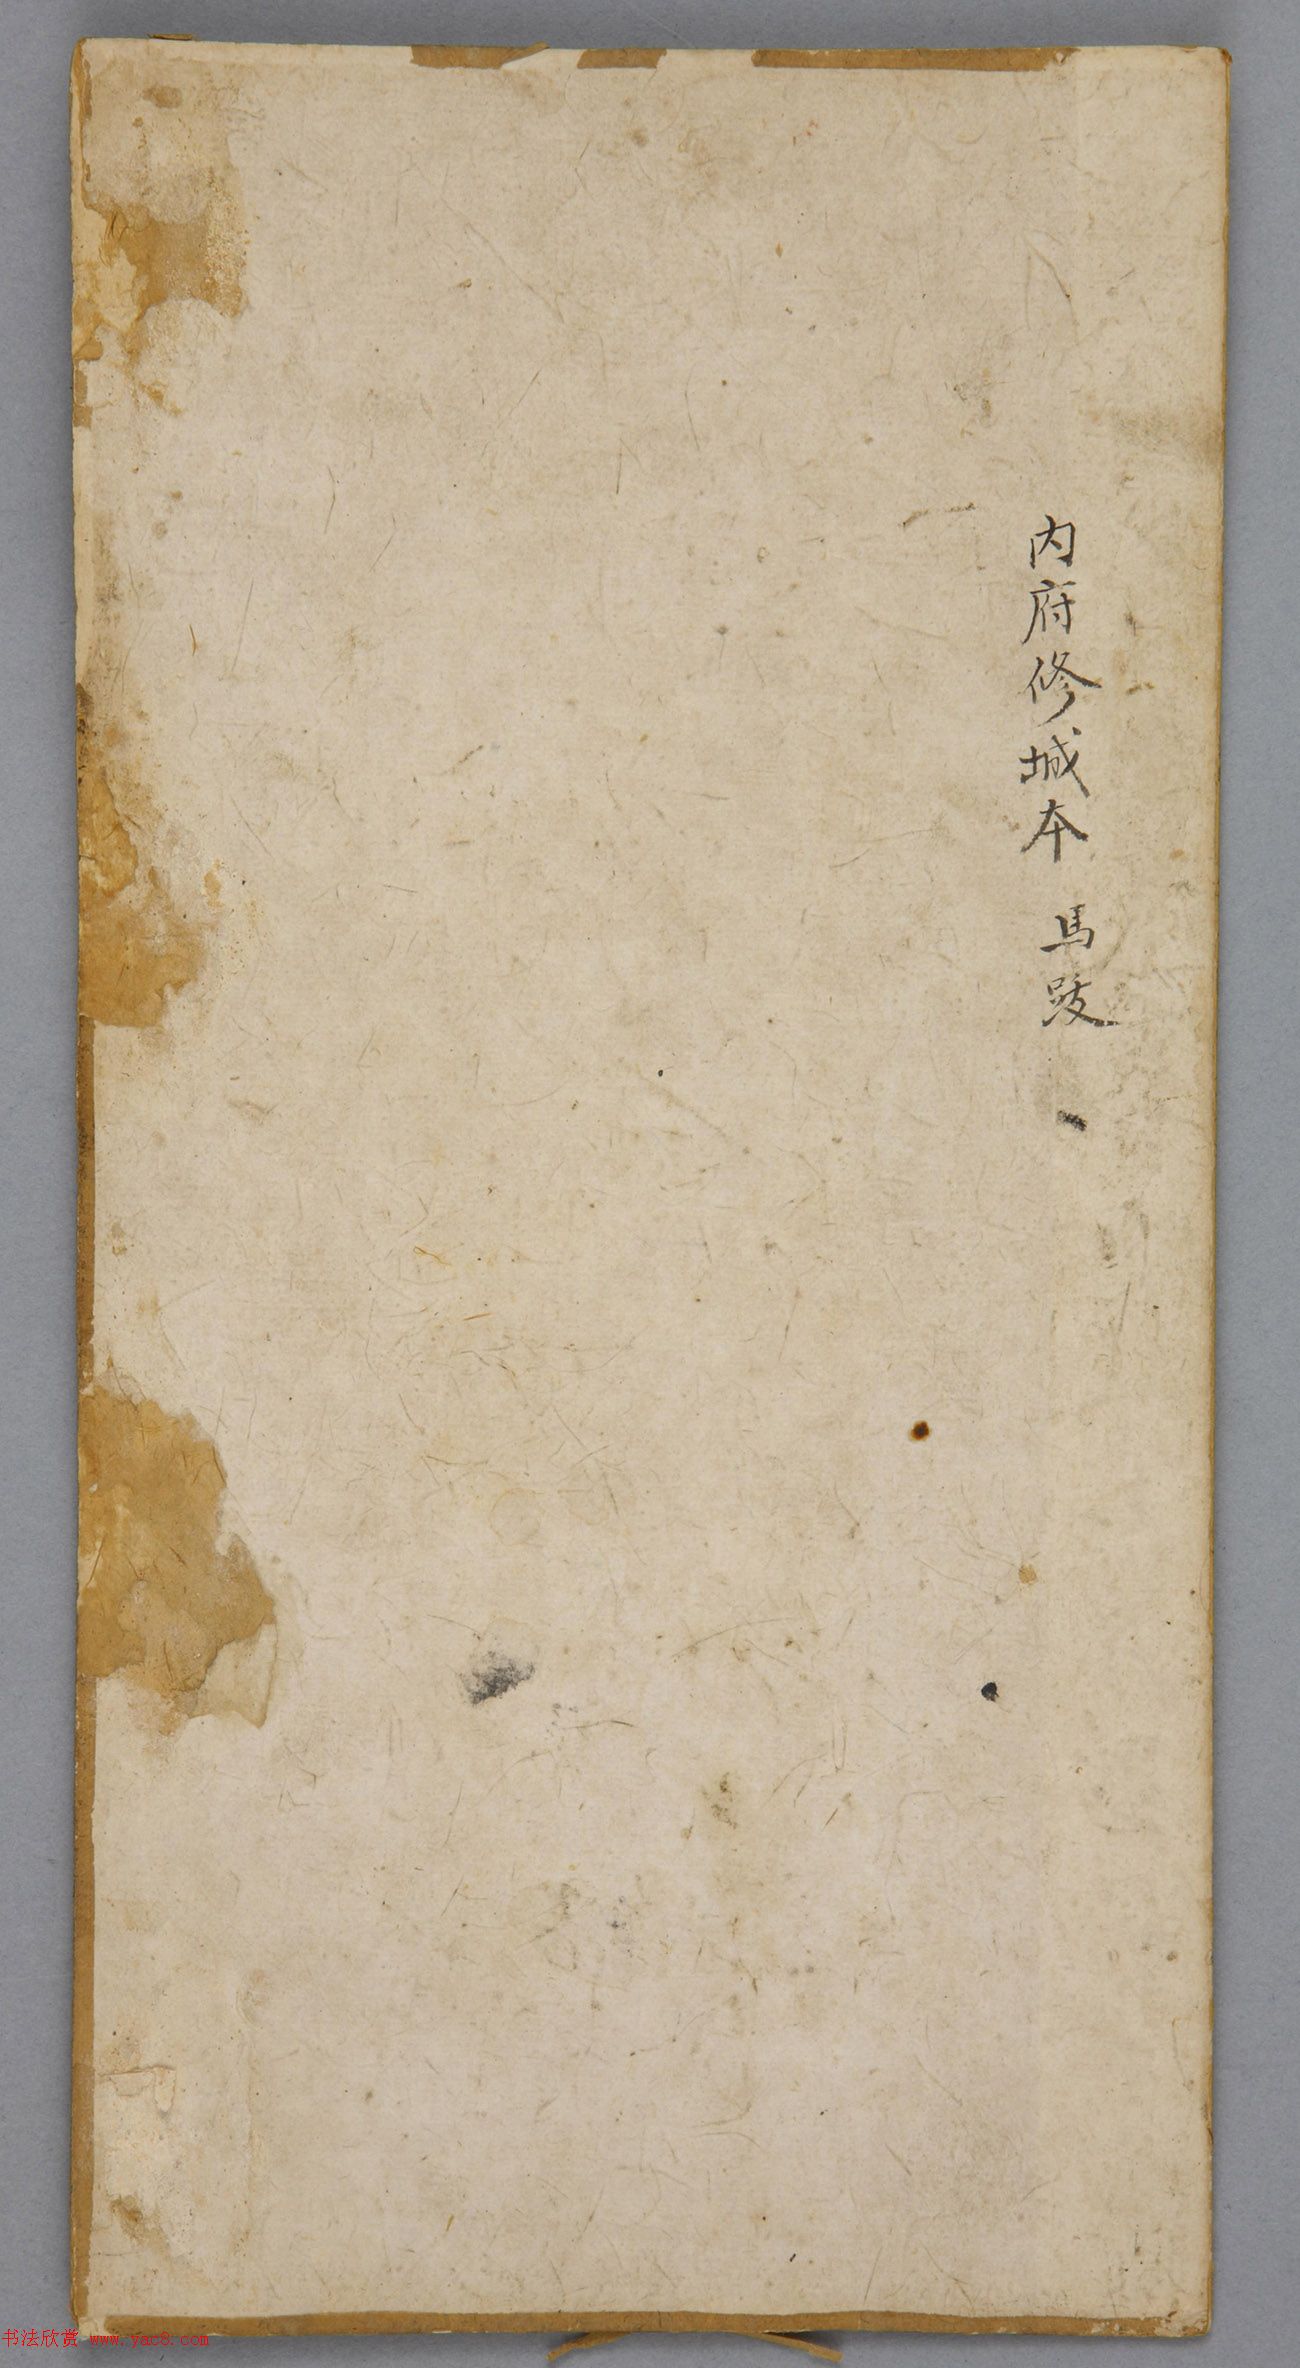 内府修城本 馬跋
书法欣赏 www.yac8.com